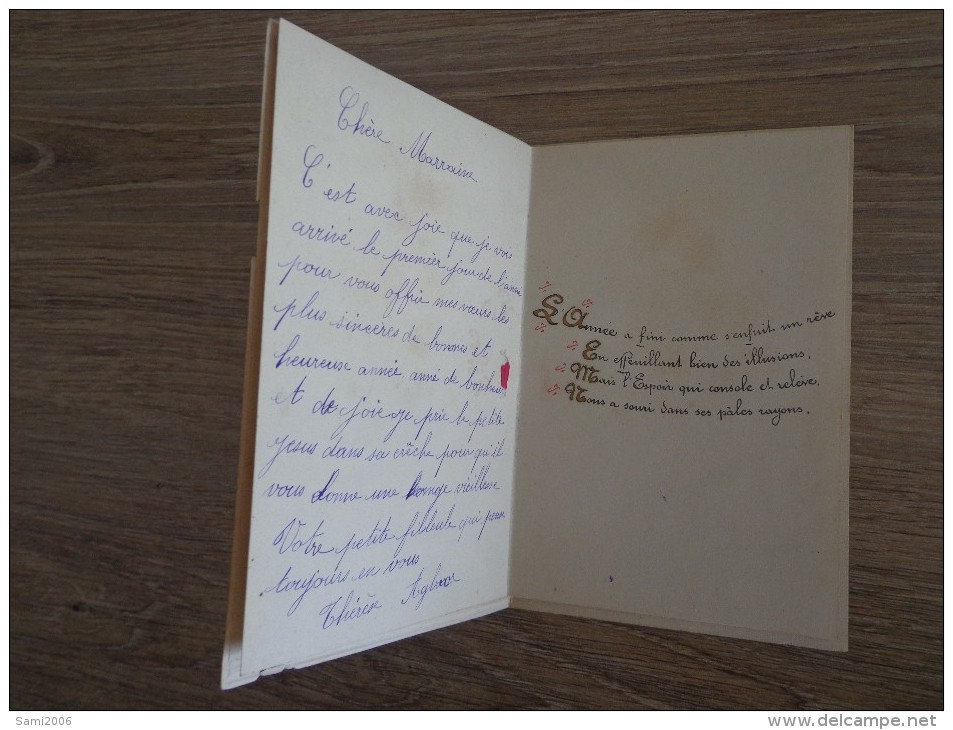 Chère Marraine
C'est avec joie que je vois
arrivé le premier jour de l'anne
pour vous offrir mes vœurs les
plus sincères de bonnes et
heureuse année anné de bonheur
et de joie je prie le petite
jesus dans sa crêche pour qu'il
vous donne une longe vieillesse
Votre petite filleule qui pense
toujours en vous
Thérèse
L'Année a fini comme s'enfuit un rêve
En effeuillant bien des illusions,
Mais l'Espoir qui console et relève,
Nous a souri dans ses pâles rayons.
Sami2006
delcampe.net